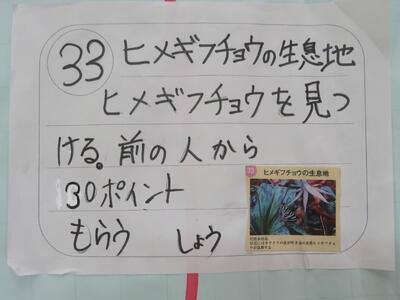 33 ヒメギフチョウの生息地
ヒメギフチョウを見つ
ける。前の人から
30ポイント
もらう しょう
33 ヒメギフチョウの生息地